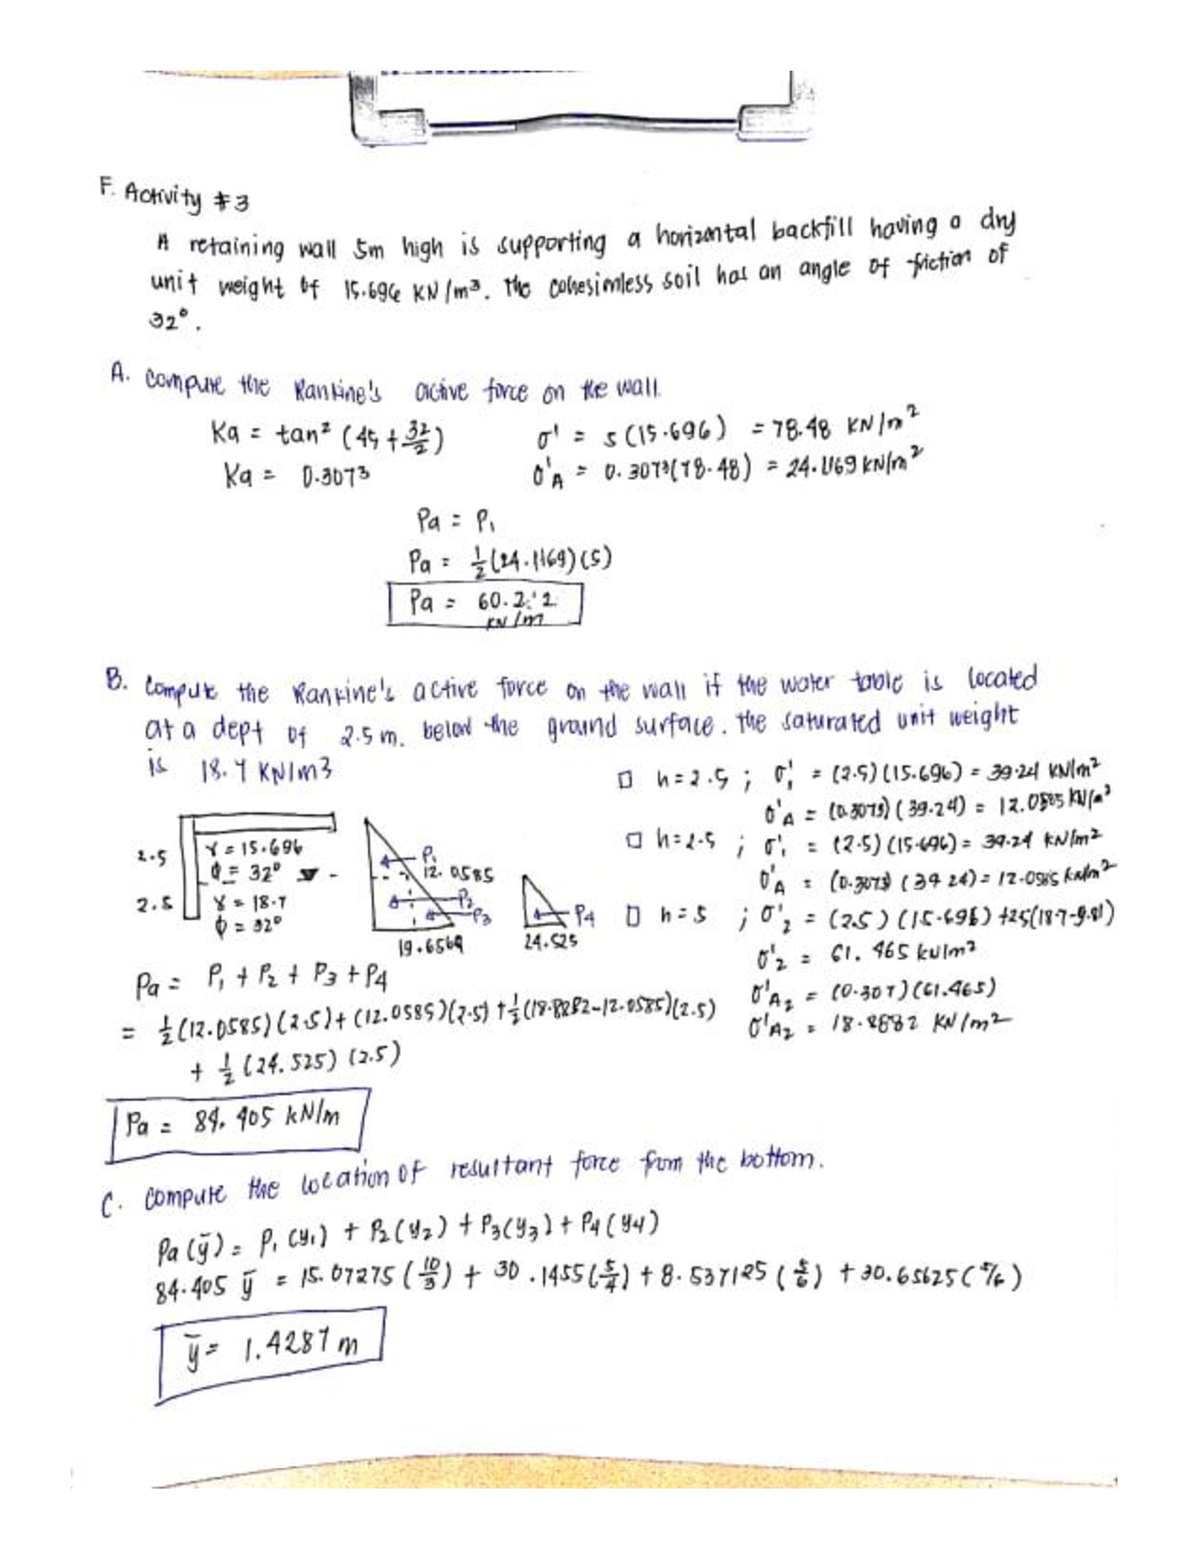 F. Activity #3
A retaining wall 5m high is supporting a horizontal backfill having a dry
unit weight of 15.696 KN/m³. The cohesionless soil has an angle of friction of
32°.
A. Compute the Rankine's active force on the wall.
Ka = tan² (45 + 32/2)
σ' = 5(15.696) = 78.48 KN/m²
Ka = 0.3073
σ'A = 0.3073(78.48) = 24.1169 KN/m²
Pa = P₁
Pa = 1/2 (24.1169)(5)
Pa = 60.2 2
KN/m
B. Compute the Rankine's active force on the wall if the water table is located
at a dept of 2.5 m. below the ground surface. The saturated unit weight
is 18.7 KN/m3
□ h = 2.5 ; σ'₁ = (2.5)(15.696) = 39.24 KN/m²
σ'A = (0.3073)(39.24) = 12.0585 KN/m²
□ h = 2.5 ; σ'₁ = (2.5)(15.696) = 39.24 KN/m²
σ'A = (0.3073)(39.24) = 12.0585 KN/m²
□ h = 5 ; σ'₂ = (2.5)(15.696) + 2.5(18.7-9.81)
σ'₂ = 61.465 KN/m²
σ'A₂ = (0.307)(61.465)
σ'A₂ = 18.8882 KN/m²
2.5
γ = 15.696
ϕ = 32°
2.5
γ = 18.7
ϕ = 32°
P₁
12.0585
P₂
P₃
19.6569
P4
24.525
Pa = P₁ + P₂ + P₃ + P4
= 1/2 (12.0585)(2.5) + (12.0585)(2.5) + 1/2 (18.8882-12.0585)(2.5)
+ 1/2 (24.525)(2.5)
Pa = 84.405 kN/m
C. Compute the location of resultant force from the bottom.
Pa(ȳ) = P₁(y₁) + P₂(y₂) + P₃(y₃) + P4(y4)
84.405 ȳ = 15.07275 (10/3) + 30.1455 (5/4) + 8.537125 (5/6) + 30.65625 (5/6)
ȳ = 1.4287 m